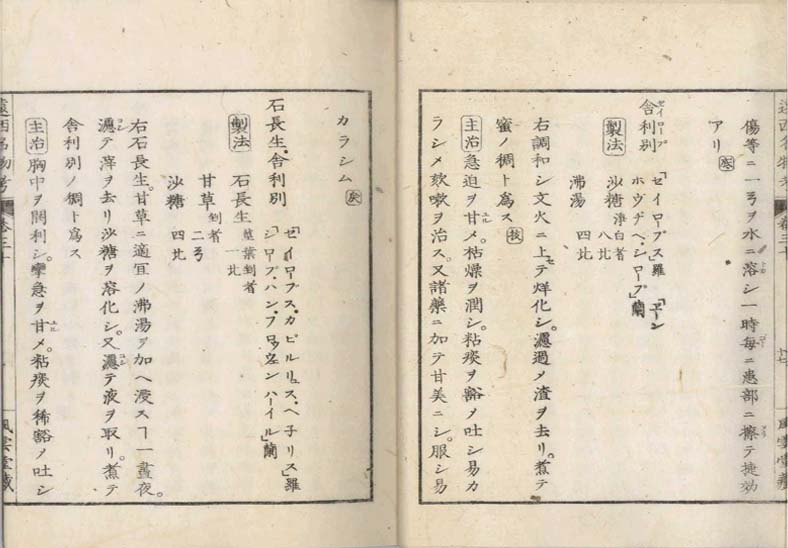 傷等ニ一ヲ水ニ溶シ一時毎ニ患部ニ擦テ捷効
アリ
舎利別 セイロープ 「セイロープス」羅
ホウヂヘ、シロープ」蘭
製法 沙糖 浄白者 八比
沸湯 四比
右調和シ文火ニ上セテ烊化シ。濾過メ渣ヲ去リ。煮テ
蜜ノ稠ト為ス
主治 急迫ヲ甘メ。枯燥ヲ潤シ。粘痰ヲ豁メ吐シ易カ
ラシメ欬嗽ヲ治ス。又諸薬ニ加テ甘美ニシ。服シ易
カラシム
石長生、舎利別
製法 石長生 茎葉剉者 一比
甘草 剉者 二
沙糖 四比
右石長生。甘草ニ適宜ノ沸湯ヲ加ヘ浸スヿ一晝夜。
濾テ滓ヲ去リ沙糖ヲ溶化シ。又濾テ液ヲ取リ。煮テ
舎利別ノ稠ト為ス
主治 胸中ヲ開利シ。攣急ヲ甘メ。粘痰ヲ稀豁ノ吐シ
風雲堂蔵